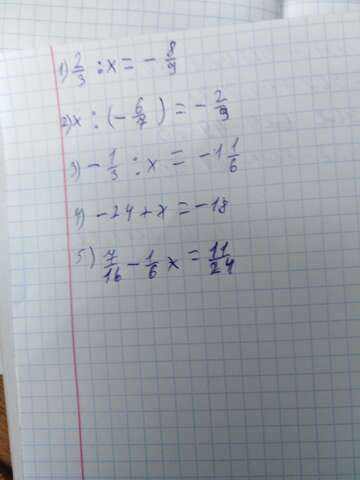 1) 2/3 : x = - 8/9
2) x : (- 6/7) = - 2/9
3) - 1/3 : x = -1 1/6
4) -24 + x = -18
5) 7/16 - 1/6 x = 11/24